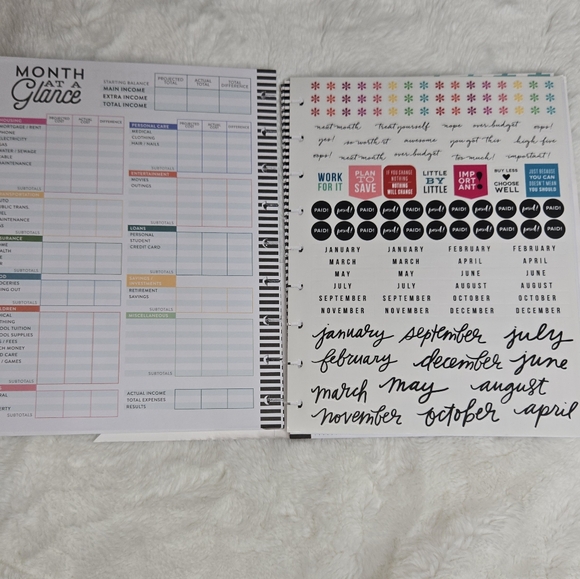 MONTH
AT A
Glance
STARTING BALANCE
MAIN INCOME
EXTRA INCOME
TOTAL INCOME
PROJECTED TOTAL
ACTUAL TOTAL
TOTAL DIFFERENCE
PROJECTED COST
ACTUAL COST
DIFFERENCE
MORTGAGE / RENT
WATER / SEWAGE
MAINTENANCE
SUBTOTALS
SUBTOTALS
INSURANCE
SUBTOTALS
SUBTOTALS
SUBTOTALS
PERSONAL CARE
MEDICAL
CLOTHING
HAIR / NAILS
SUBTOTALS
ENTERTAINMENT
MOVIES
OUTINGS
SUBTOTALS
LOANS
PERSONAL
STUDENT
CREDIT CARD
SUBTOTALS
SAVINGS / INVESTMENTS
RETIREMENT
SAVINGS
SUBTOTALS
MISCELLANEOUS
SUBTOTALS
ACTUAL INCOME
TOTAL EXPENSES
RESULTS
next month treat yourself nope over budget oops!
yes! so worth it awesome you got this high five
oops! next month over budget too much! important!
WORK FOR IT
PLAN TO SAVE
IF YOU CHANGE NOTHING NOTHING WILL CHANGE
LITTLE BY LITTLE
IMPORTANT!
BUY LESS CHOOSE WELL
JUST BECAUSE YOU CAN DOESN'T MEAN YOU SHOULD
PAID! paid! PAID! paid! PAID! paid! PAID! paid! PAID! paid! PAID!
PAID! paid! PAID! paid! PAID! paid! PAID! paid! PAID! paid! PAID!
JANUARY JANUARY FEBRUARY FEBRUARY
MARCH MARCH APRIL APRIL
MAY MAY JUNE JUNE
JULY JULY AUGUST AUGUST
SEPTEMBER SEPTEMBER OCTOBER OCTOBER
NOVEMBER NOVEMBER DECEMBER DECEMBER
january september july
february december june
march may august
november october april